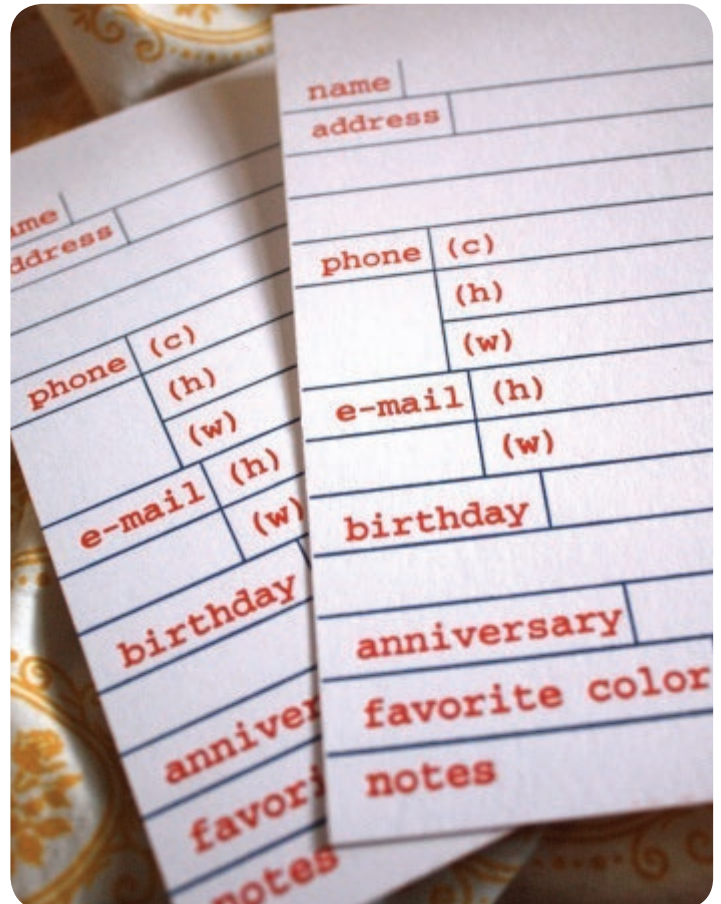 name
address
phone (c)
(h)
(w)
e-mail (h)
(w)
birthday
anniversary
favorite color
notes
ame
ddress
phone (c)
(h)
(w)
e-mail (h)
(w)
birthday
anniver
favori
notes